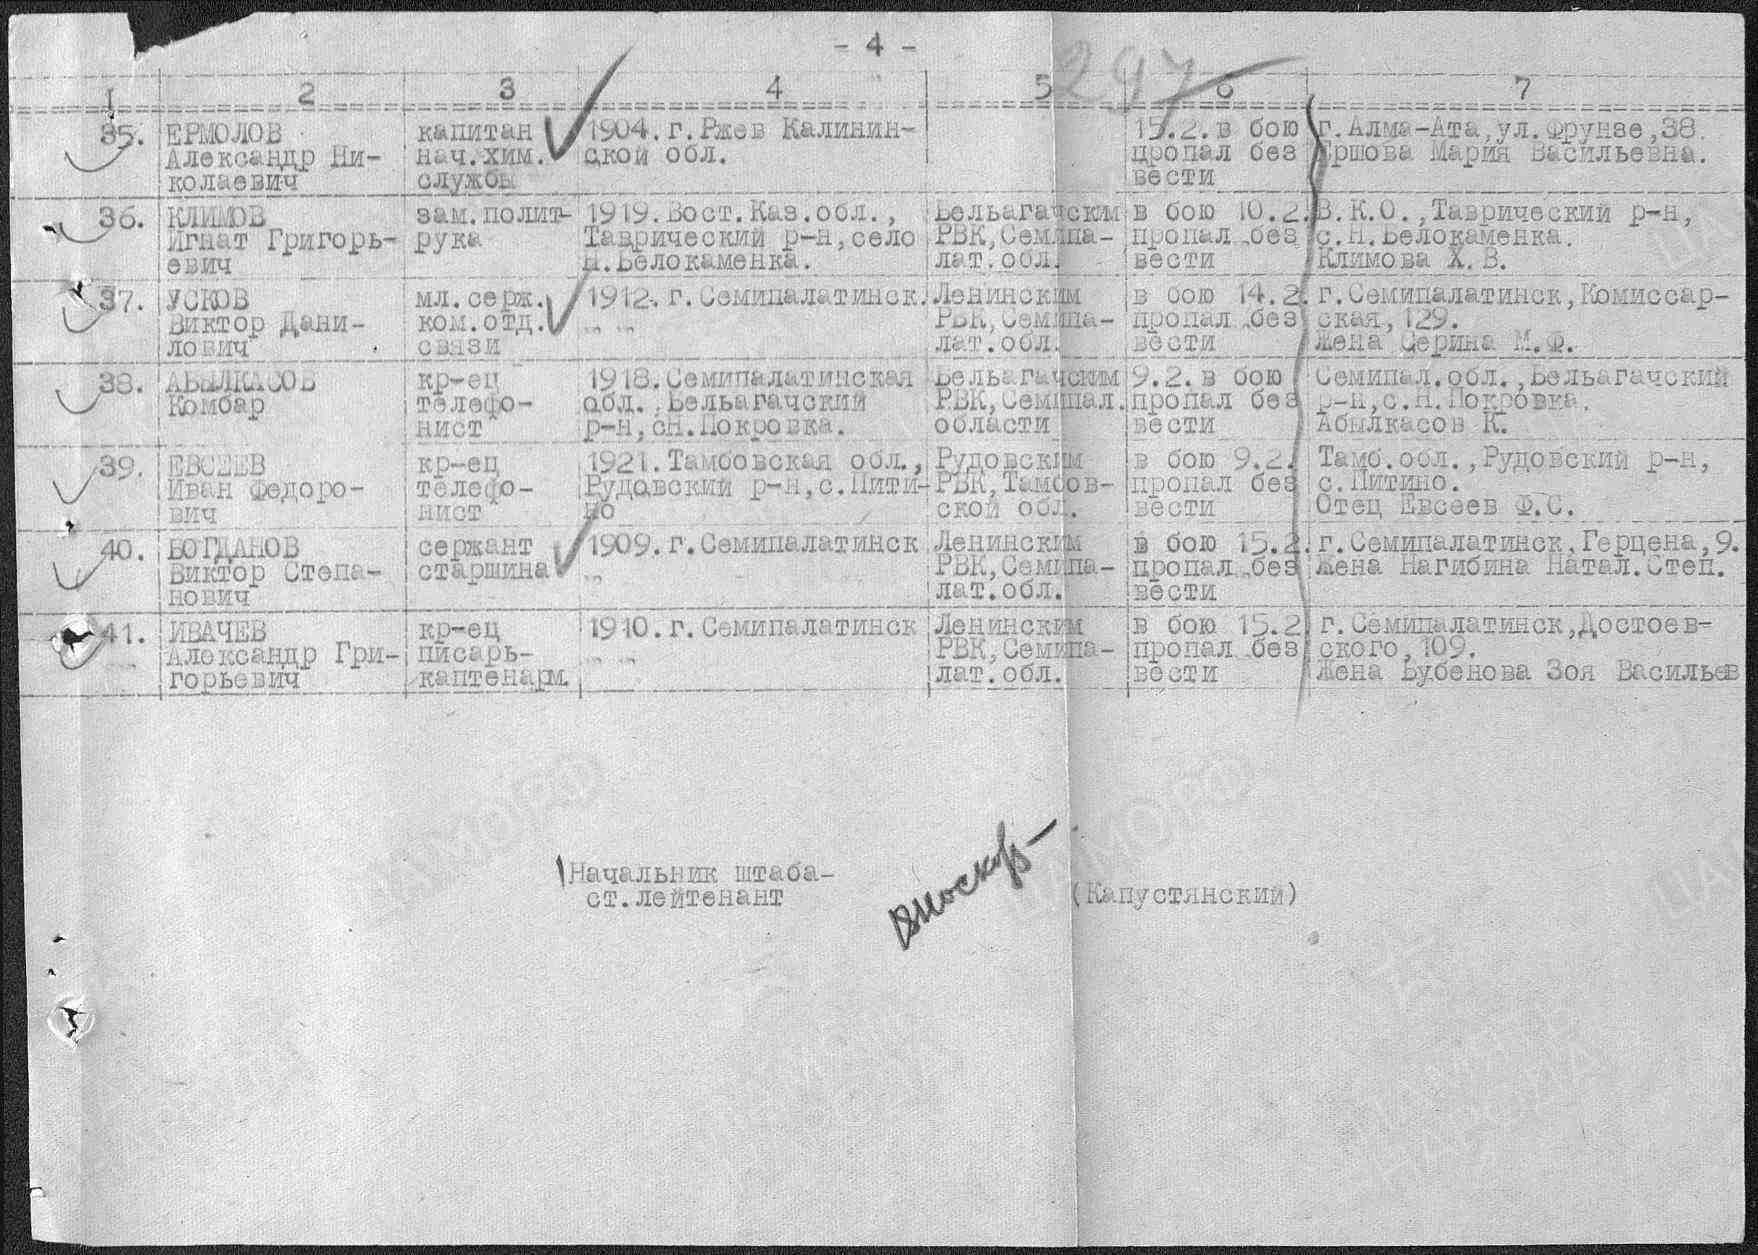 - 4 -
297
1 2 3 4 5 6 7
35. ЕРМОЛОВ капитан 1904. г. Ржев Калинин- 15.2. в бою г. Алма-Ата, ул. Фрунзе, 38.
Александр Ни- нач. хим. ской обл. пропал без Ершова Мария Васильевна.
колаевич службы вести
36. КЛИМОВ зам. полит- 1919. Вост. Каз. обл., Бельагачским в бою 10.2. В.К.О., Таврический р-н,
Игнат Григорь- рука Таврический р-н, село РВК, Семипа- пропал без с. Н. Белокаменка.
евич Н. Белокаменка. лат. обл. вести Климова Х. В.
37. УСКОВ мл. серж. 1912. г. Семипалатинск. Ленинским в бою 14.2. г. Семипалатинск, Комиссар-
Виктор Дани- ком. отд. „ „ РВК, Семипа- пропал без ская, 129.
лович связи лат. обл. вести Жена Серина М. Ф.
38. АБЫЛКАСОВ кр-ец 1918. Семипалатинская Бельагачским 9.2. в бою Семипал. обл., Бельагачский
Комбар телефо- обл., Бельагачский РВК, Семипал. пропал без р-н, с. Н. Покровка.
нист р-н, сН. Покровка. области вести Абылкасов К.
39. ЕВСЕЕВ кр-ец 1921. Тамбовская обл., Рудовским в бою 9.2. Тамб. обл., Рудовский р-н,
Иван Федоро- телефо- Рудовский р-н, с. Пити- РВК, Тамбов- пропал без с. Питино.
вич нист но ской обл. вести Отец Евсеев Ф. С.
40. БОГДАНОВ сержант 1909. г. Семипалатинск Ленинским в бою 15.2. г. Семипалатинск, Герцена, 9.
Виктор Степа- старшина „ РВК, Семипа- пропал без Жена Нагибина Натал. Степ.
нович лат. обл. вести
41. ИВАЧЕВ кр-ец 1910. г. Семипалатинск Ленинским в бою 15.2 г. Семипалатинск, Достоев-
Александр Гри- писарь- „ „ РВК, Семипа- пропал без ского, 109.
горьевич каптенарм. лат. обл. вести Жена Бубенова Зоя Васильев
Начальник штаба-
ст. лейтенант (Капустянский)